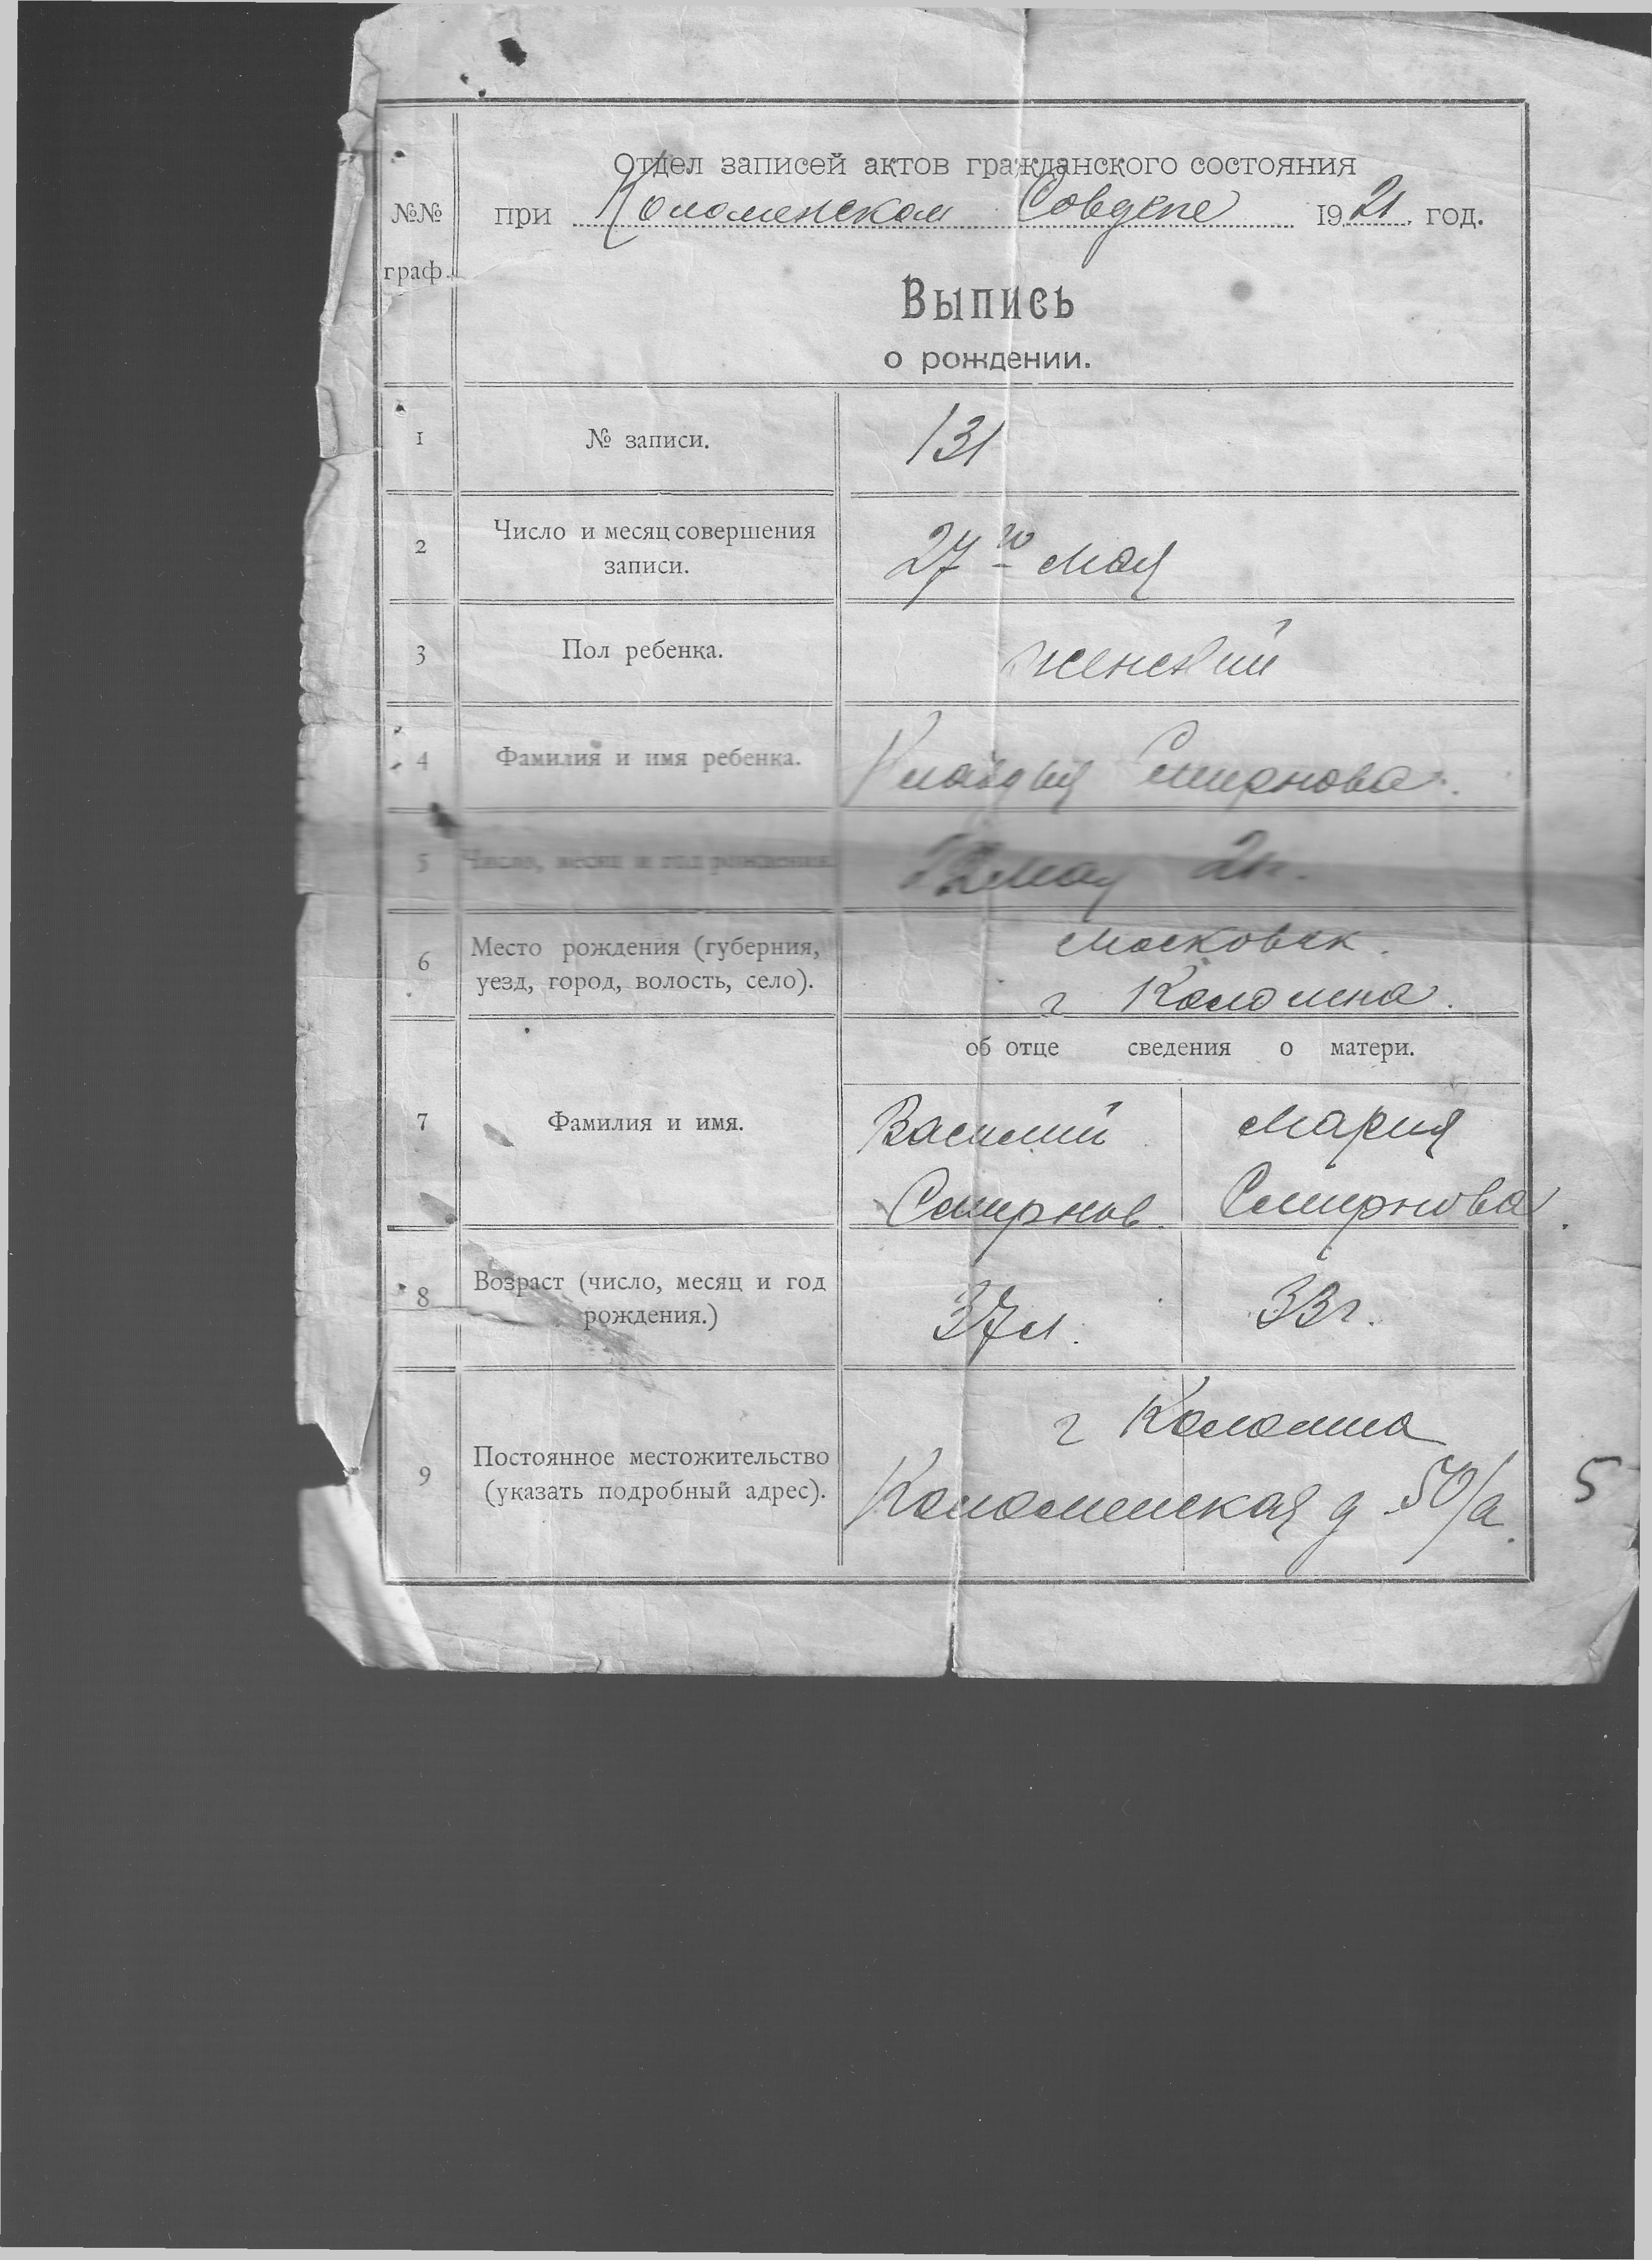 Отдел записей актов гражданского состояния
№№ при Коломенском Совдепе 1921 год.
граф.
Выпись
о рождении.
1 № записи. 131
2 Число и месяц совершения
записи. 27го мая
3 Пол ребенка. женский
4 Фамилия и имя ребенка. Клавдия Смирнова.
5 Число, месяц и год рождения. мая 21г.
6 Место рождения (губерния, Московск.
уезд, город, волость, село). г Коломна.
об отце сведения о матери.
7 Фамилия и имя. Василий Мария
Смирнов. Смирнова.
8 Возраст (число, месяц и год
рождения.) 37л. 33г.
г Коломна
9 Постоянное местожительство
(указать подробный адрес). Коломенская д 50/а.
5